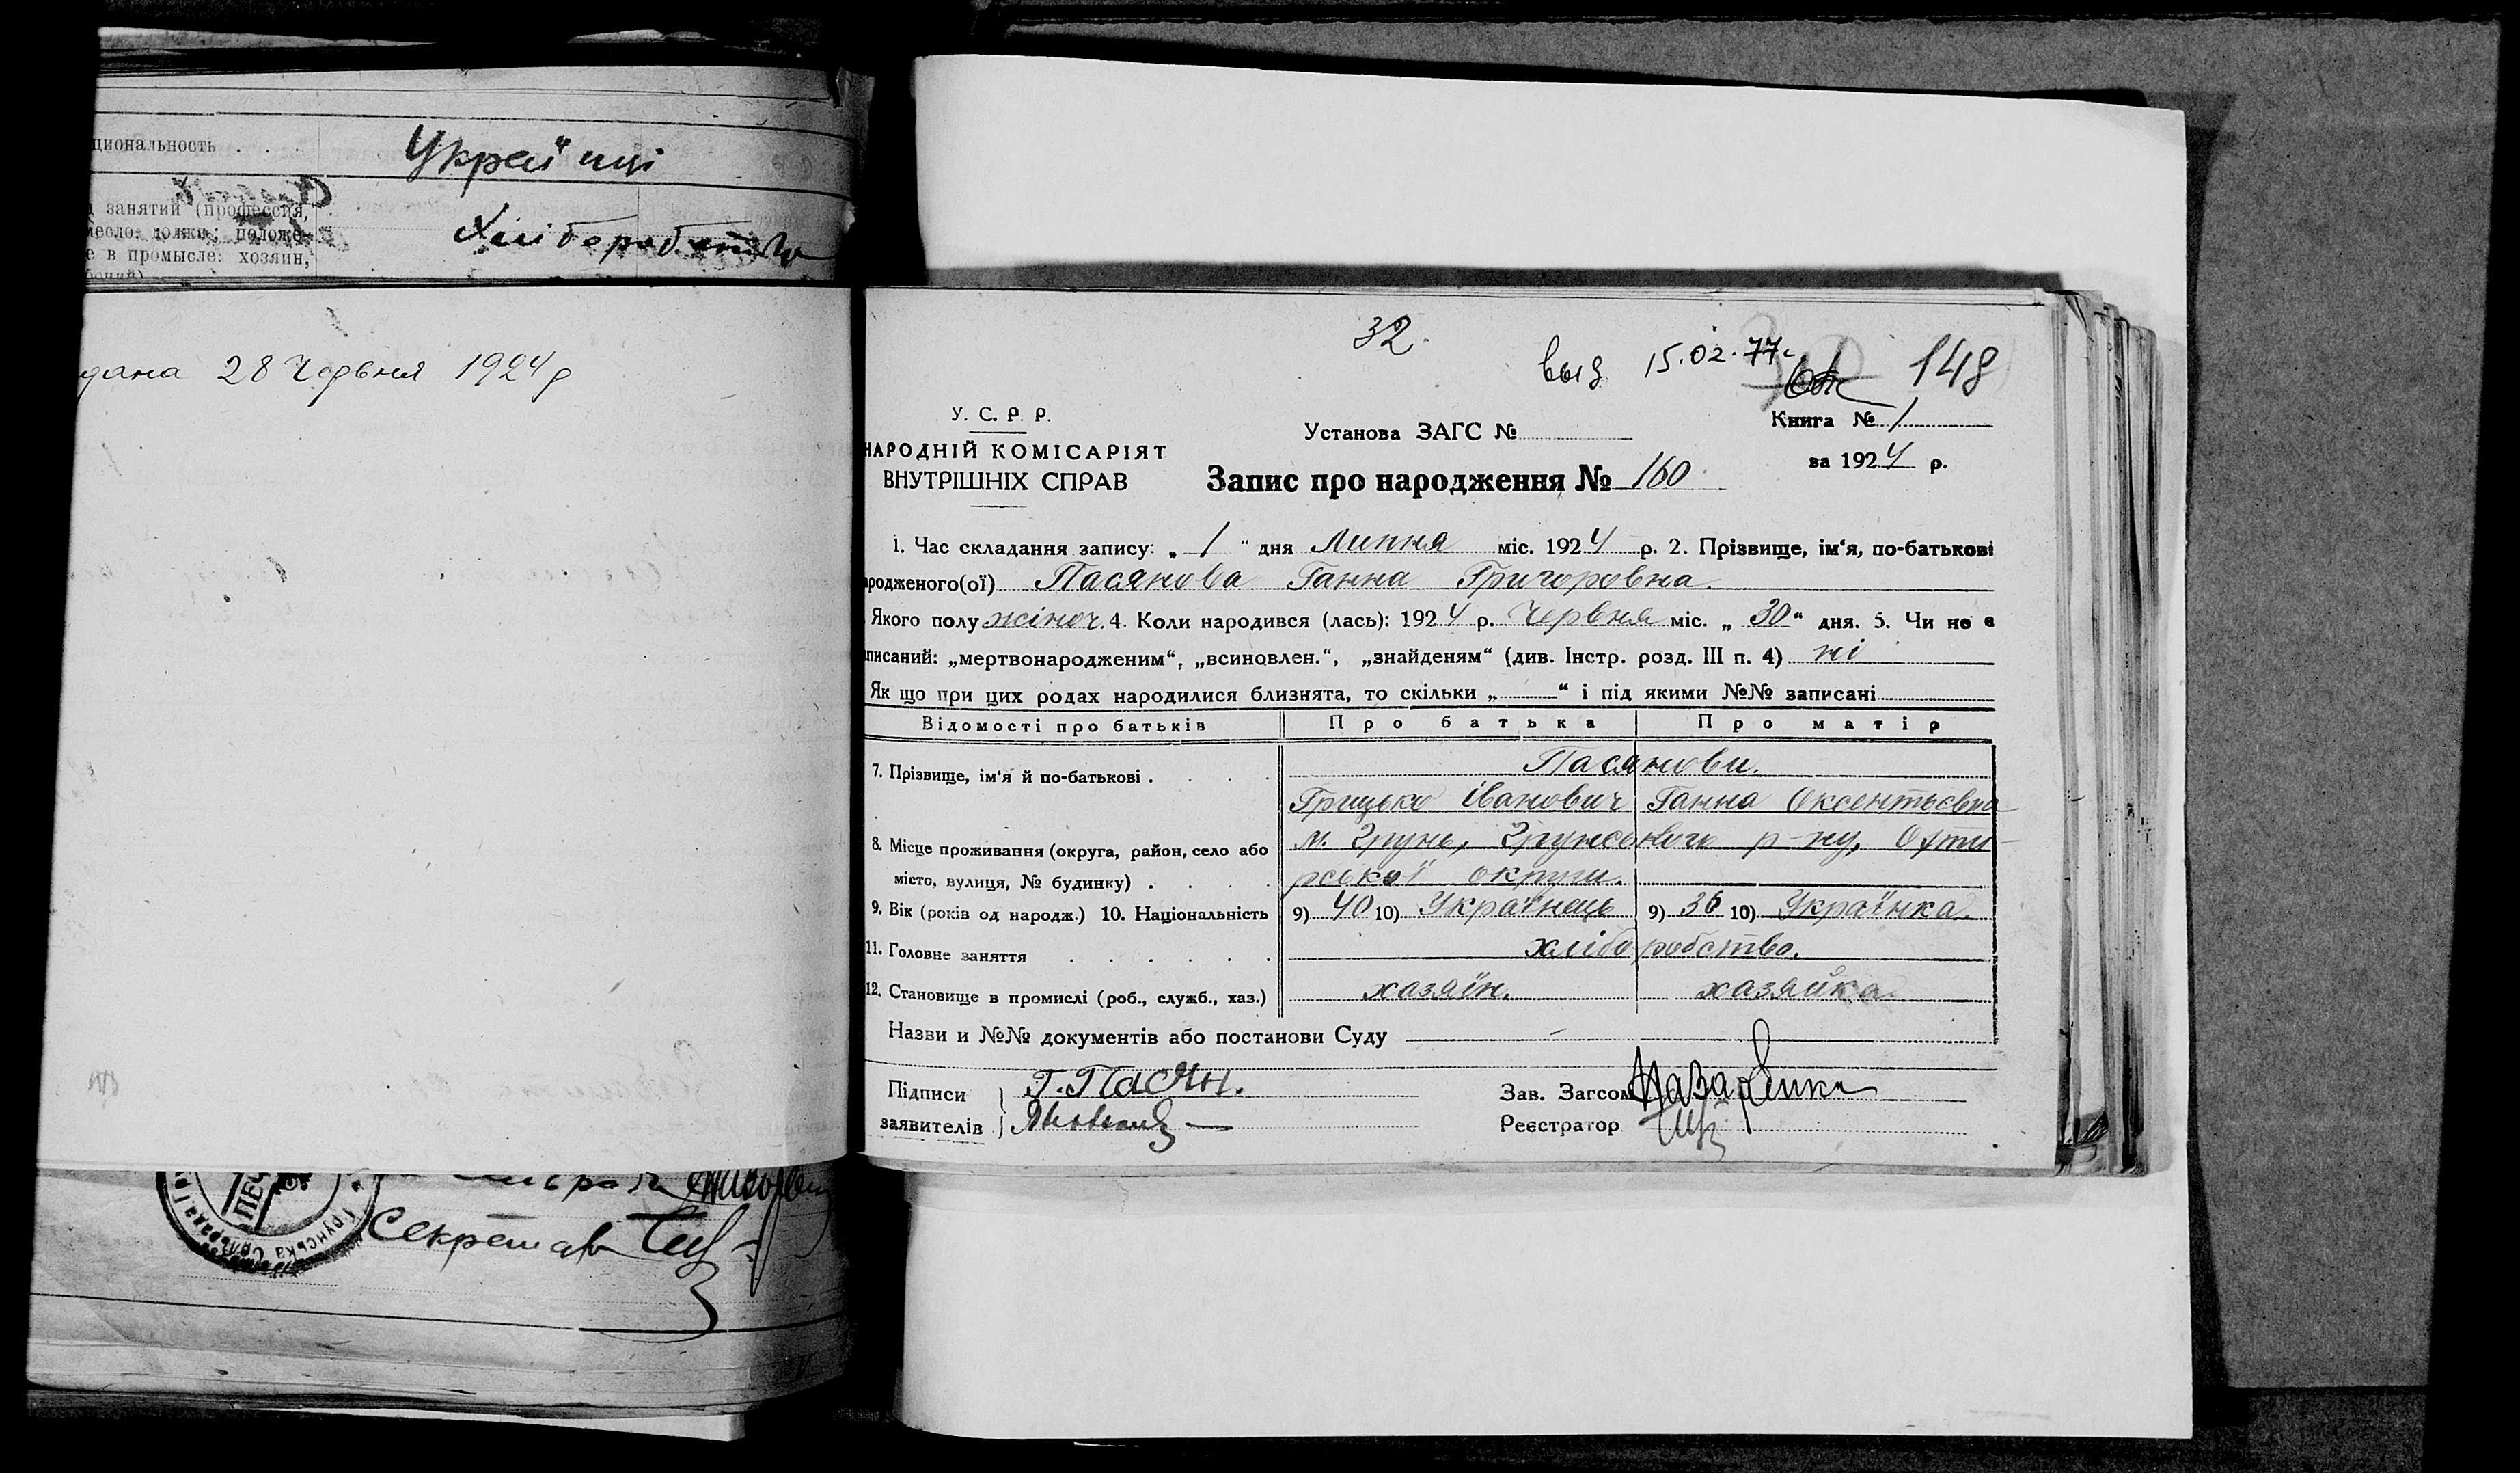 циональность . . .
Украї́нці
занятий (профессия,
положе-
е в промысле: хозяин,
Хліборобство
дана 28 Червня 1924 р
Секретар
32.
выд 15.02.77г
148
У. С. Р. Р.
НАРОДНІЙ КОМІСАРІЯТ
ВНУТРІШНІХ СПРАВ
Установа ЗАГС №
Книга № 1
за 1924 р.
Запис про народження № 160
1. Час складання запису: „ 1 “ дня Липня міс. 1924 р. 2. Прізвище, ім‘я, по-батькові
родженого(ої) Пасянова Ганна Григоровна
Якого полу жіноч. 4. Коли народився (лась): 1924 р. Червня міс. „ 30 “ дня. 5. Чи не є
писаний: „мертвонародженим“, „всиновлен.“, „знайденям“ (див. Інстр. розд. III п. 4) ні
Як що при цих родах народилися близнята, то скільки „ — “ і під якими №№ записані
Відомості про батьків Про батька Про матір
7. Прізвище, ім‘я й по-батькові . . . . Пасянови.
Грицько Іванович Ганна Оксентьєвна
8. Місце проживання (округа, район, село або м. Грунь, Грунського р-ну, Охти-
місто, вулиця, № будинку) . . . . рської округи.
9. Вік (років од народж.) 10. Національність 9) 40 10) Українець 9) 36 10) Українка.
11. Головне заняття . . . . . . хліборобство.
12. Становище в промислі (роб., служб., хаз.) хазяїн. хазяйка.
Назви и №№ документів або постанови Суду —
Підписи Г. Пасян.
заявителів
Зав. Загсом Назаренко
Реєстратор